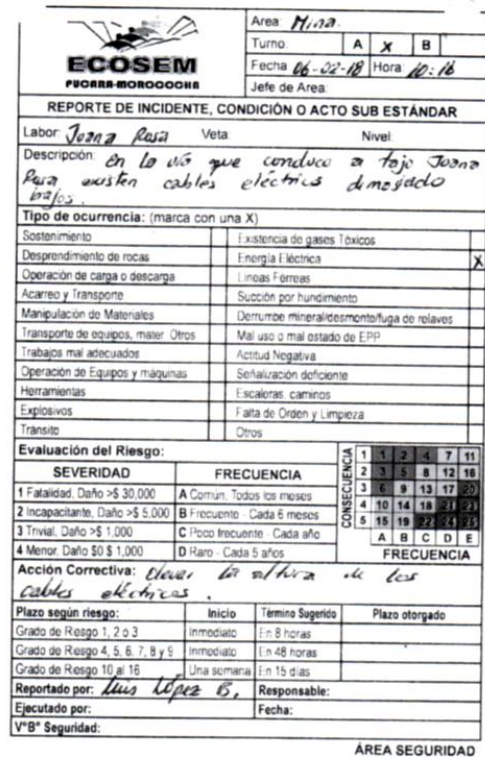 ECOSEM
PUCARA-MOROCOCHA
Area: Mina.
Turno: A X B
Fecha 06-02-18 Hora: 10:16
Jefe de Area:
REPORTE DE INCIDENTE, CONDICIÓN O ACTO SUB ESTÁNDAR
Labor: Juana Rosa Veta: Nivel:
Descripción: En la vía que conduce a tajo Juana
Rosa existen cables eléctrics demasiado
bajos.
Tipo de ocurrencia: (marca con una X)
Sostenimiento Existencia de gases Tóxicos
Desprendimiento de rocas Energía Eléctrica X
Operación de carga o descarga Lineas Férreas
Acarreo y Transporte Succión por hundimiento
Manipulación de Materiales Derrumbe mineral/desmonte/fuga de relaves
Transporte de equipos, mater. Otros Mal uso o mal estado de EPP
Trabajos mal adecuados Actitud Negativa
Operación de Equipos y máquinas Señalización deficiente
Herramientas Escaleras, caminos
Explosivos Falta de Orden y Limpieza
Transito Otros
Evaluación del Riesgo:
SEVERIDAD FRECUENCIA
1 Fatalidad, Daño >$ 30,000 A Común, Todos los meses
2 Incapacitante, Daño >$ 5,000 B Frecuente - Cada 6 meses
3 Trivial, Daño >$ 1,000 C Poco frecuente - Cada año
4 Menor, Daño $0 $ 1,000 D Raro - Cada 5 años
CONSECUENCIA
1 1 2 4 7 11
2 3 5 8 12 16
3 6 9 13 17 20
4 10 14 18 21 23
5 15 19 22 24 25
A B C D E
FRECUENCIA
Acción Correctiva: elevar la altura de los
cables eléctricos.
Plazo según riesgo: Inicio Término Sugerido Plazo otorgado
Grado de Riesgo 1, 2 o 3 Inmediato En 8 horas
Grado de Riesgo 4, 5, 6, 7, 8 y 9 Inmediato En 48 horas
Grado de Riesgo 10 al 16 Una semana En 15 días
Reportado por: Luis López B. Responsable:
Ejecutado por: Fecha:
V°B° Seguridad:
ÁREA SEGURIDAD